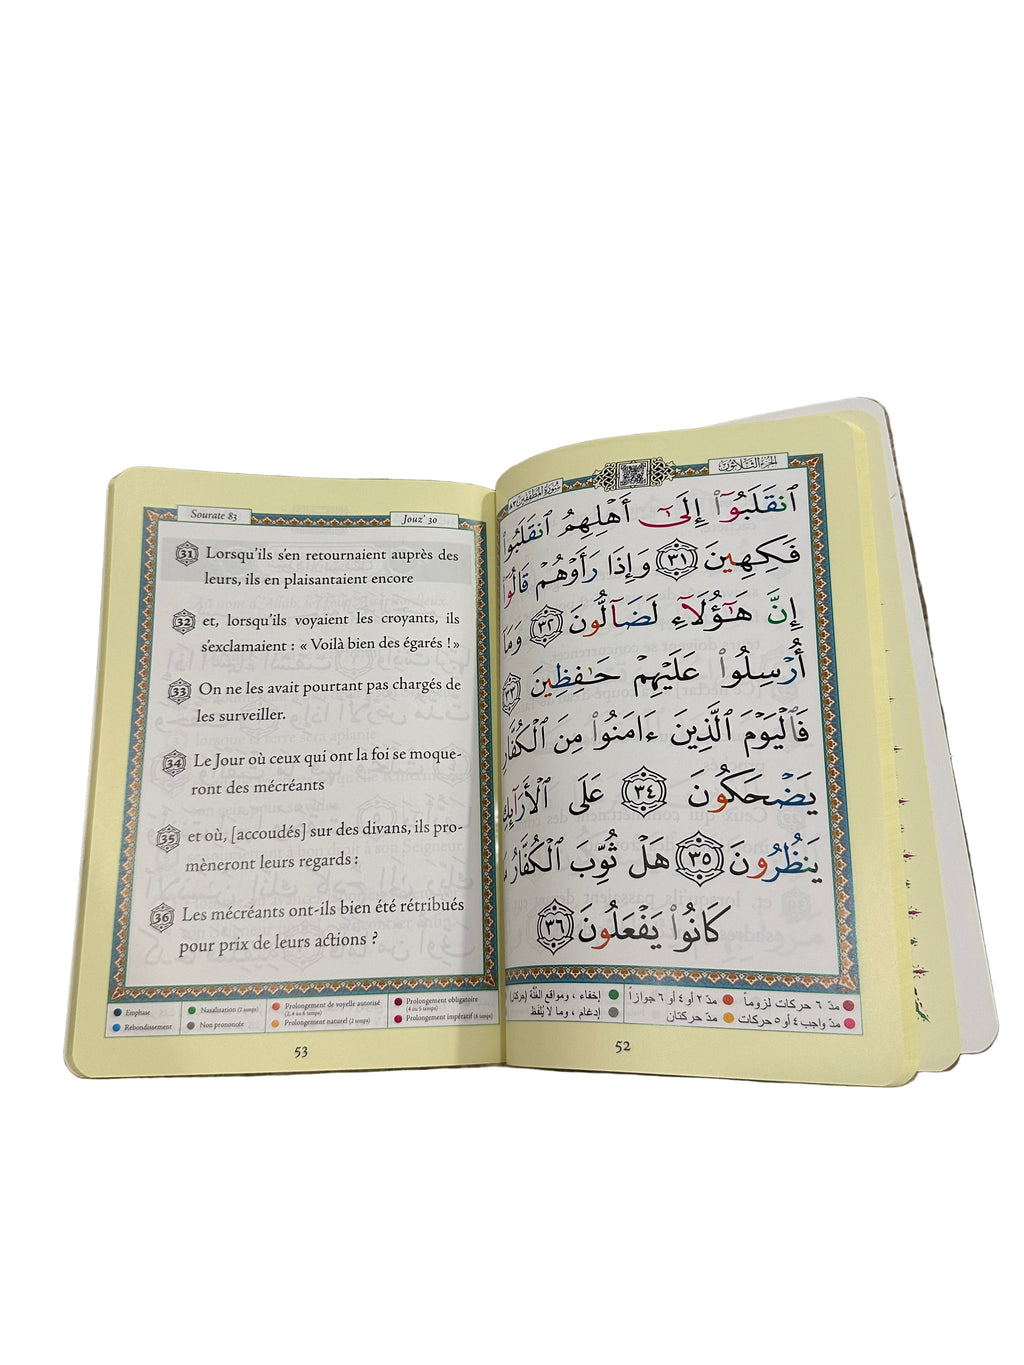 Sourate 83
Jouz' 30
31 Lorsqu'ils s'en retournaient auprès des
leurs, ils en plaisantaient encore
32 et, lorsqu'ils voyaient les croyants, ils
s'exclamaient : « Voilà bien des égarés ! »
33 On ne les avait pourtant pas chargés de
les surveiller.
34 Le Jour où ceux qui ont la foi se moque-
ront des mécréants
35 et où, [accoudés] sur des divans, ils pro-
mèneront leurs regards :
36 Les mécréants ont-ils bien été rétribués
pour prix de leurs actions ?
Emphase
Rebondissement
Nasalisation (2 temps)
Non prononcée
Prolongement de voyelle autorisé
(2, 4 ou 6 temps)
Prolongement naturel (2 temps)
Prolongement obligatoire
(4 ou 5 temps)
Prolongement impératif (6 temps)
53
الجزء الثلاثون
سورة المطففين ٨٣
ٱنقَلَبُوٓا۟ إِلَىٰٓ أَهْلِهِمُ ٱنقَلَبُوا۟
فَكِهِينَ ٣١ وَإِذَا رَأَوْهُمْ قَالُوٓا۟
إِنَّ هَـٰٓؤُلَآءِ لَضَآلُّونَ ٣٢ وَمَآ
أُرْسِلُوا۟ عَلَيْهِمْ حَـٰفِظِينَ ٣٣
فَٱلْيَوْمَ ٱلَّذِينَ ءَامَنُوا۟ مِنَ ٱلْكُفَّارِ
يَضْحَكُونَ ٣٤ عَلَى ٱلْأَرَآئِكِ
يَنظُرُونَ ٣٥ هَلْ ثُوِّبَ ٱلْكُفَّارُ
كَانُوا۟ يَفْعَلُونَ ٣٦
مدّ ٦ حركات لزوماً
مدّ ٢ أو ٤ أو ٦ جوازاً
إخفاء ، ومواقع الغُنَّة (حركتان)
مدّ واجب ٤ أو ٥ حركات
مدّ حركتان
إدغام ، وما لا يُلفظ
52